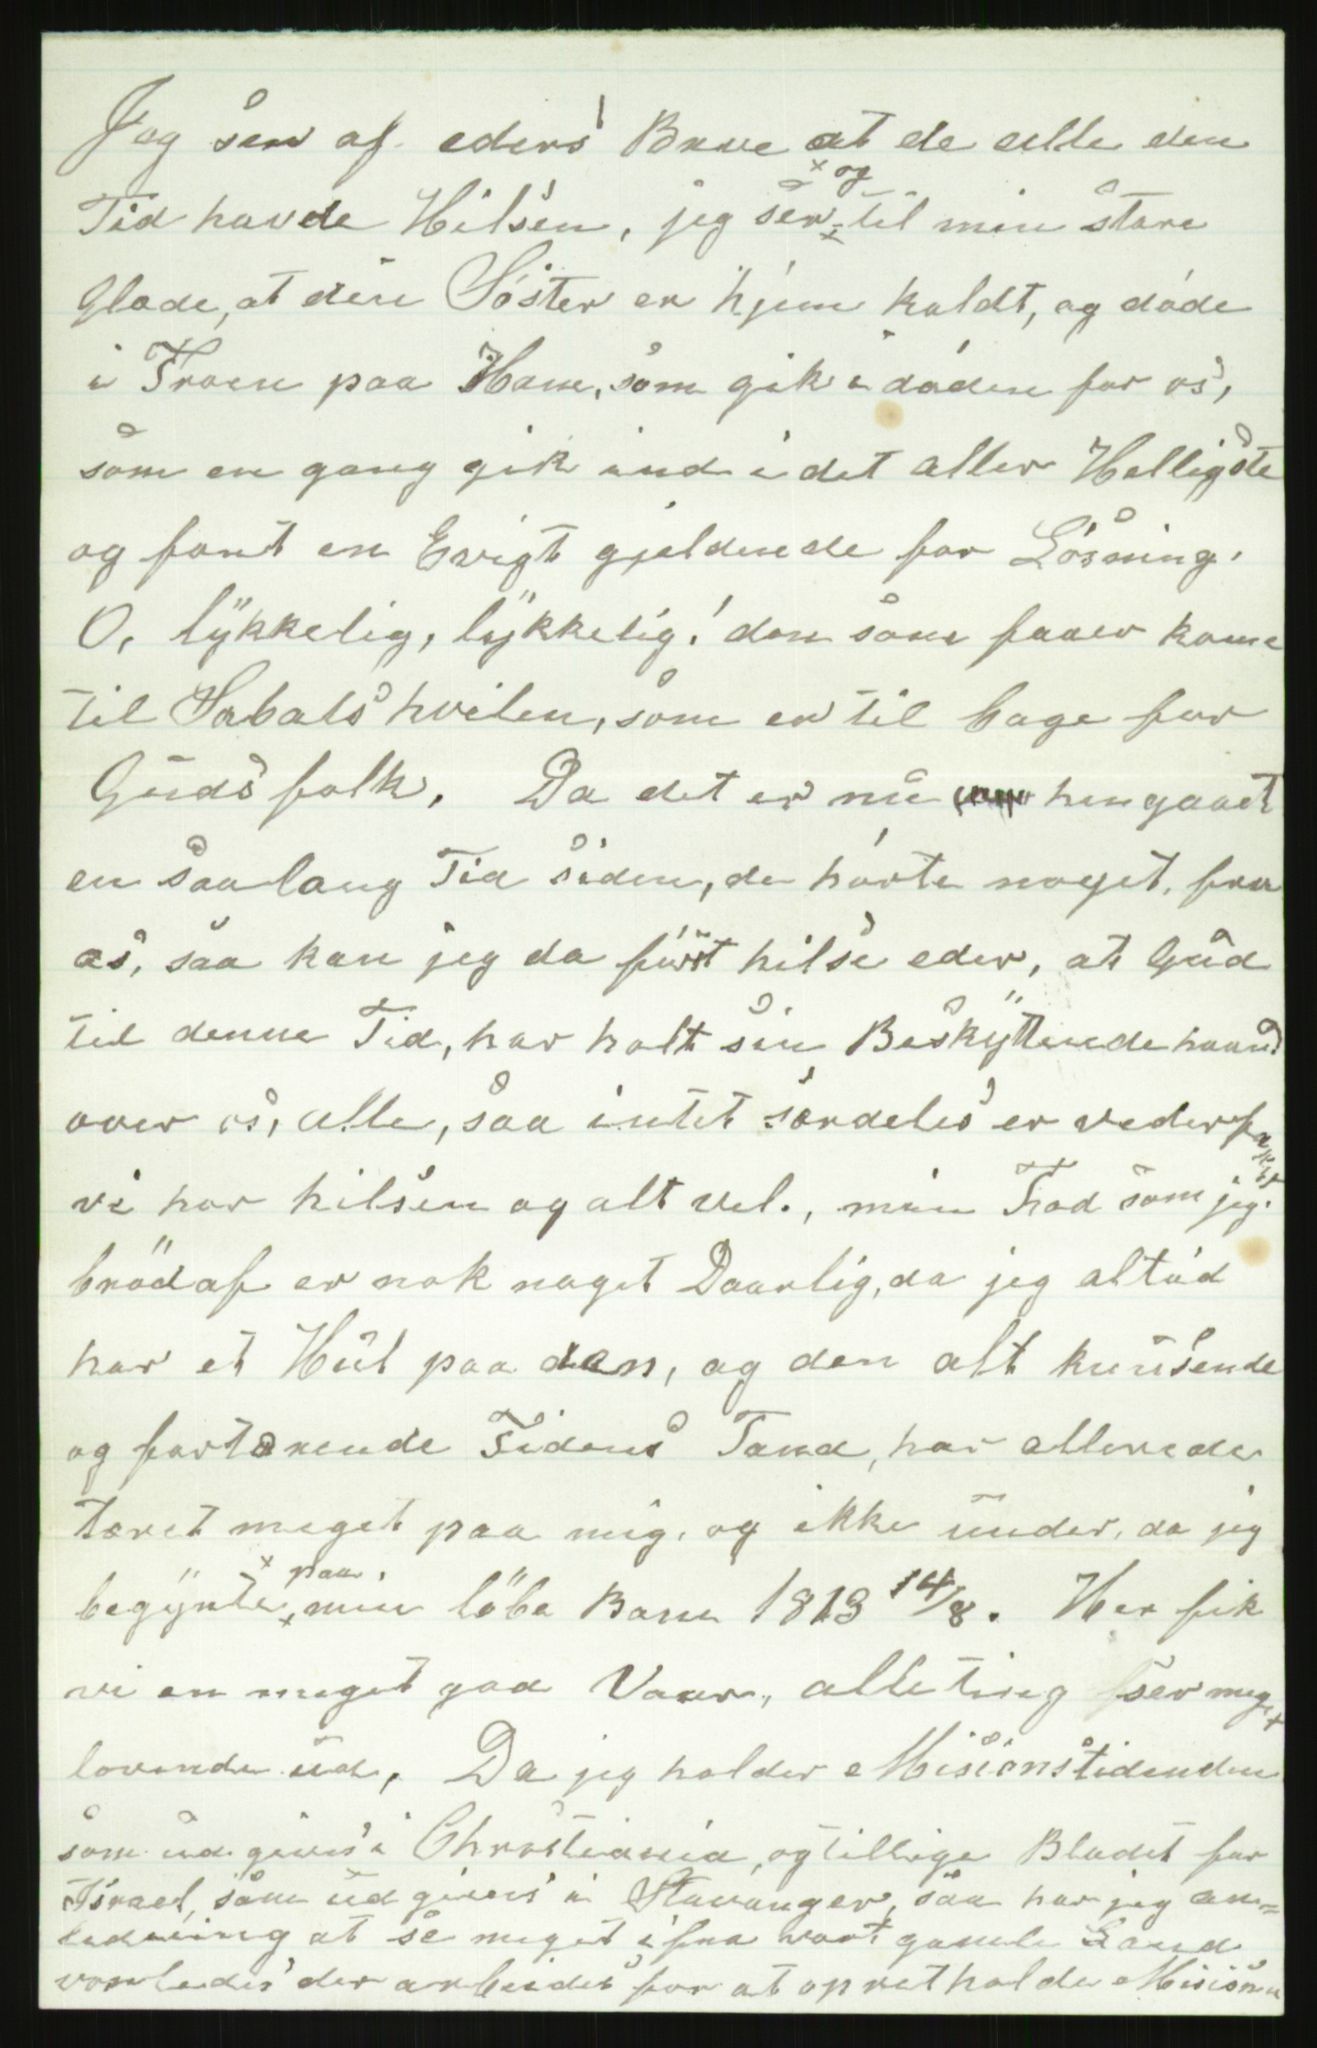 Jeg ser af eders Breve at de alle den
Tid havde Hilsen, jeg ser og til min store
Glæde, at din Søster er hjem kaldt, og døde
i Troen paa Ham, som gik i døden for os,
som en gang gik ind i det aller Helligste
og fant en Evigt gjeldende for Løsning.
O, lykkelig, lykkelig! den som faaer kome
til Sabats hvilen, som er til bage for
Guds folk. Da det er nu hengaaet
en saa lang Tid siden, de hørte noget, fra
os, saa kan jeg da først hilse eder, at Gud
til denne Tid, har holt sin Beskyttende haand
over os, alle, saa intet særdeles er vederfa
vi har hilsen og alt vel., min Fod som jeg
brød af er nok noget Daarlig, da jeg altid
har et Hul paa den, og den alt knusende
og fortærende Tidens Tand, har allerede
tæret meget paa mig, og ikke under, da jeg
begynte paa min løbe Bane 1813 14/8. Her fik
vi en meget god Vaar, alleting ser meget
lovende ud, Da jeg holder Misionstidenden
som ud gives i Christiania, og tillige Bladet for
Israel, som ud gives i Stavanger, saa har jeg an=
ledning at se meget ifra vort gamle Land
vorledes der arbeides for at opretholde Misionen